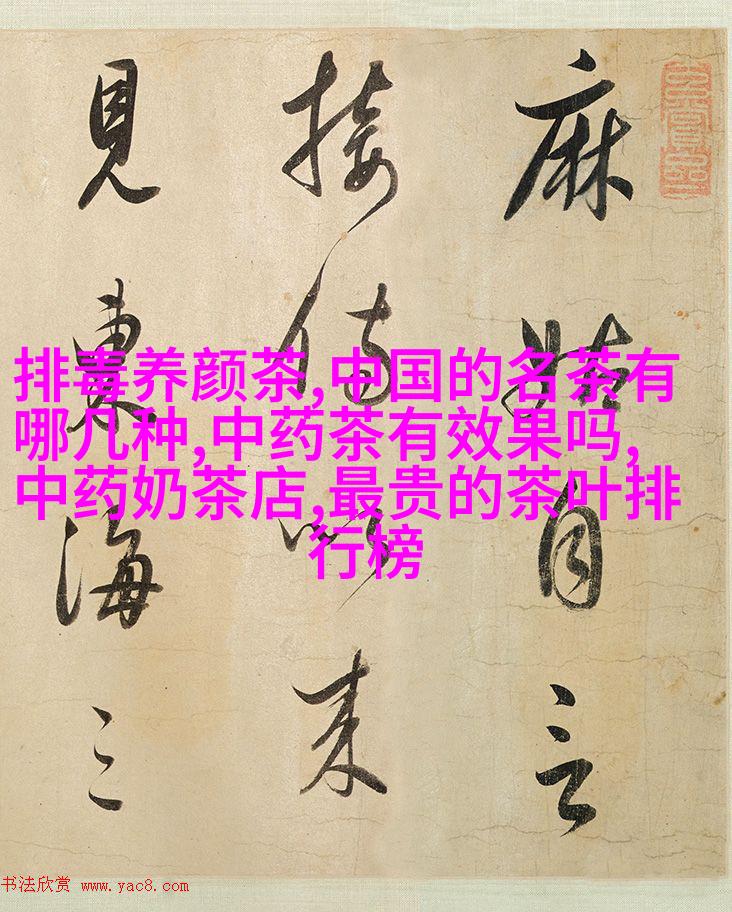 麻姑自言
接侍以來
見東海三
排毒养颜茶,中国的名茶有
哪几种,中药茶有效果吗,
中药奶茶店,最贵的茶叶排
行榜
书法欣赏 www.yac8.com